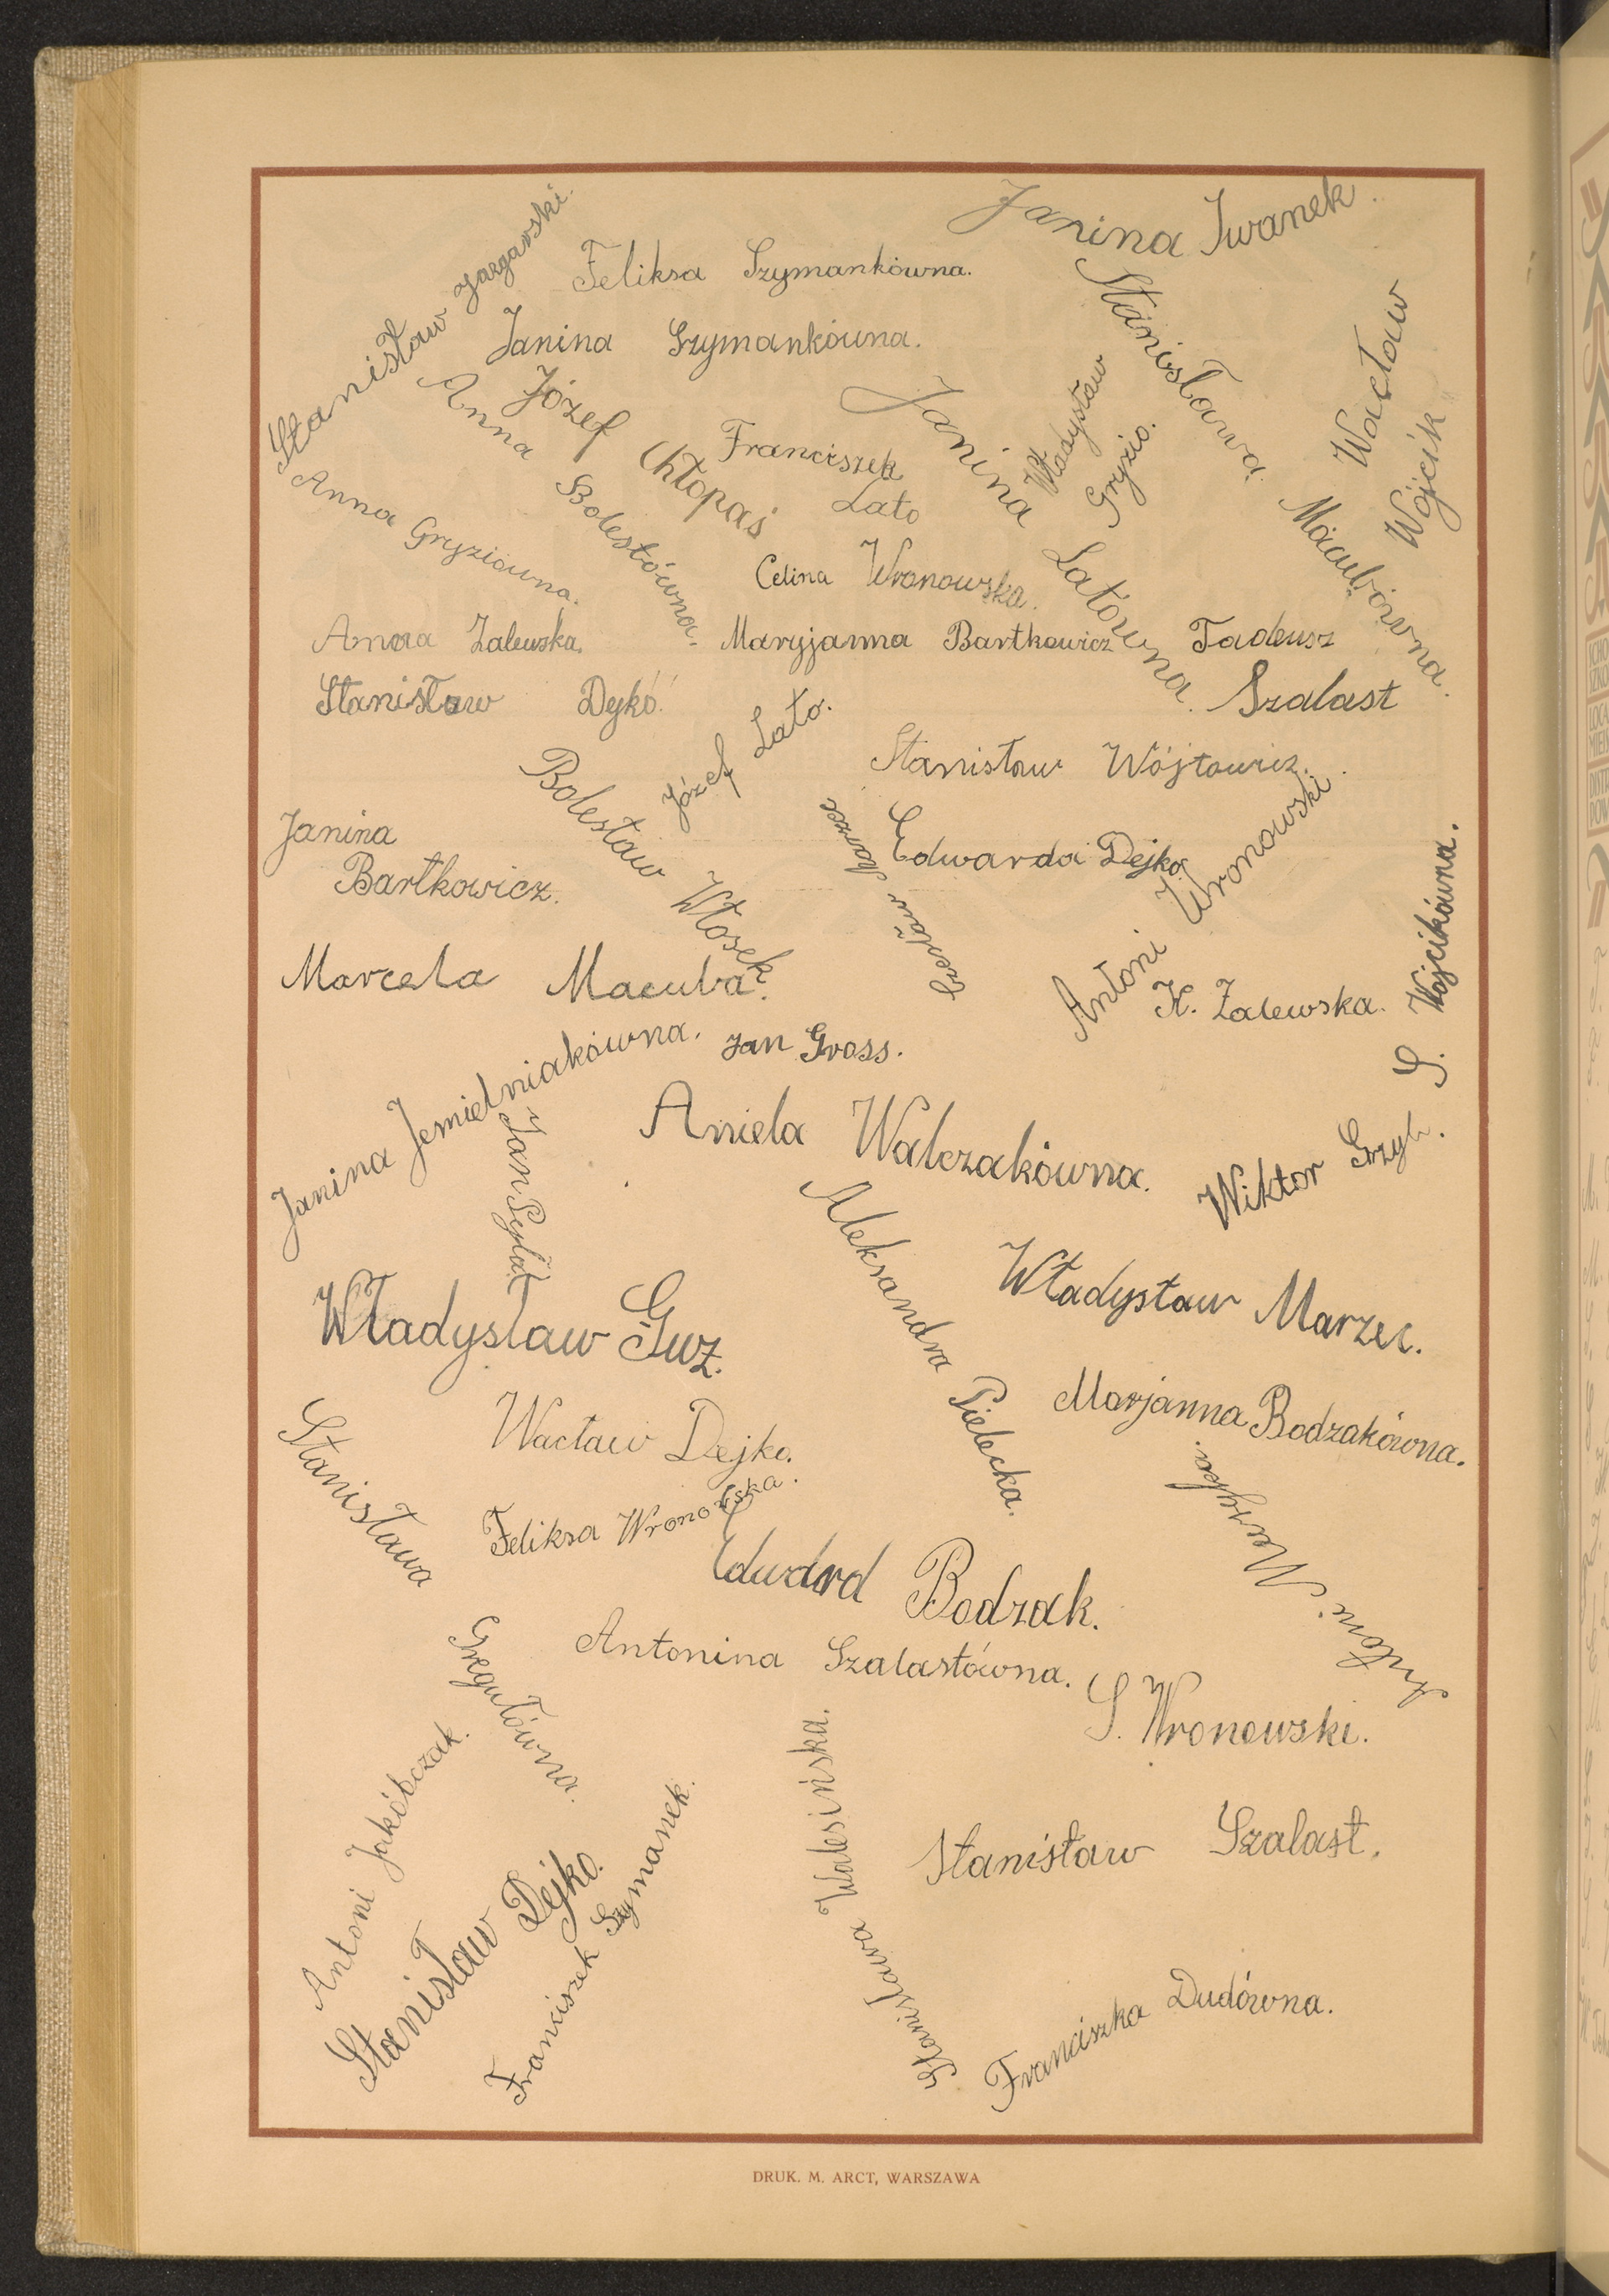 Janina Iwanek.
Stanisław Jargarski.
Feliksa Szymankówna.
Janina Szymankówna.
Stanisława Macubówna.
Wacław
Wójcik
Józef Chłopaś
Anna Bolestówna.
Franciszek
Lato
Janina Latowna.
Władysław
Gryzio.
Anna Gryziówna.
Celina Wronowska.
Anna Zalewska.
Maryjanna Bartkowicz
Tadeusz
Szalast
Stanisław Dejkó.
Józef Lato.
Stanisław Wójtowicz.
Bolesław Włosek.
Janina
Bartkowicz.
Czesław Marzec
Edwarda Dejko.
Antoni Wronowski
S. Wójcikówna.
Marcela Macuba.
K. Zalewska.
Jan Gross.
Janina Jemielniakówna.
Jan Pylak
Aniela Walczakówna.
Wiktor Grzyb.
Aleksandra Pielecka.
Władysław Marzec.
Władysław Guz.
Marjanna Bodzakówna.
Wacław Dejko.
Stanisława Gregułówna.
Feliksa Wronowska.
Edward Bodzak.
Antoni
Antonina Szalastówna.
S. Wronowski.
Antoni Jakóbczak.
Stanisław Dejko.
Franciszek Szymanek.
Stanisława Walesińska.
Stanisław Szalast.
Franciszka Dudówna.
DRUK. M. ARCT, WARSZAWA